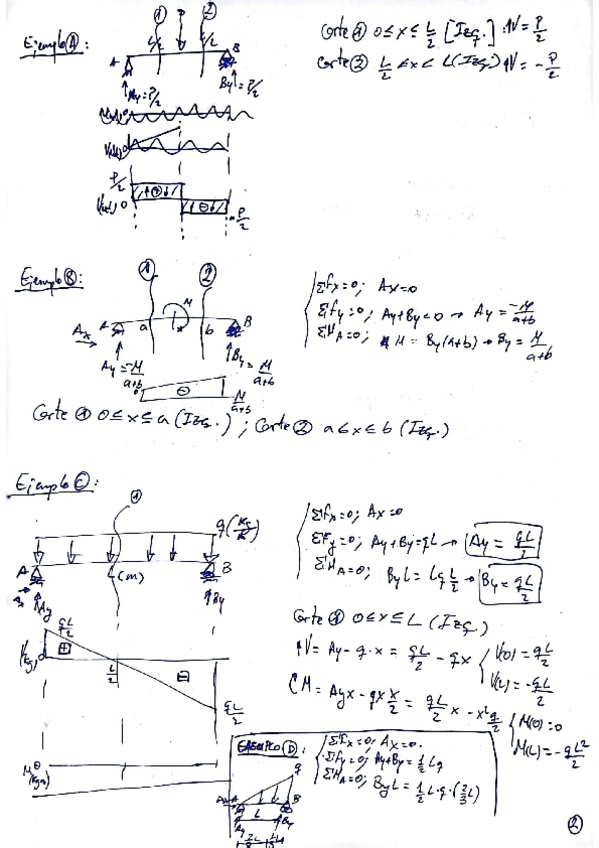 Ejemplo Ⓐ:
① ②
L/2 P L/2
A B
Ay=P/2 By=P/2
Corte ① 0≤x≤L/2 [Izq.] ↑V=P/2
Corte ② L/2≤x≤L (Izq.) ↑V=-P/2
P/2
V(x) 0
-P/2
Ejemplo Ⓑ:
① ②
M
Ax A a b B
Ay=-M/a+b By=M/a+b
M/a+b
ΣFx=0; Ax=0
ΣFy=0; Ay+By=0 → Ay=-M/a+b
ΣMA=0; M=By(a+b) → By=M/a+b
Corte ① 0≤x≤a (Izq.); Corte ② a≤x≤b (Izq.)
Ejemplo Ⓒ:
①
q
A (m) B
Ay By
qL/2
L/2
qL/2
ΣFx=0; Ax=0
ΣFy=0; Ay+By=qL → Ay=qL/2
ΣMA=0; ByL=Lq L/2 → By=qL/2
Corte ① 0≤x≤L (Izq.)
↑V=Ay-q·x=qL/2-qx V(0)=qL/2
V(L)=-qL/2
M=Ayx-qx x/2=qL/2 x-x²q/2 M(0)=0
M(L)=-qL²/2
EJEMPLO Ⓓ:
q
A B
L
Ay By
ΣFx=0; Ax=0.
ΣFy=0; Ay+By=1/2 Lq
ΣMA=0; ByL=1/2 L·q·(2/3 L)
②